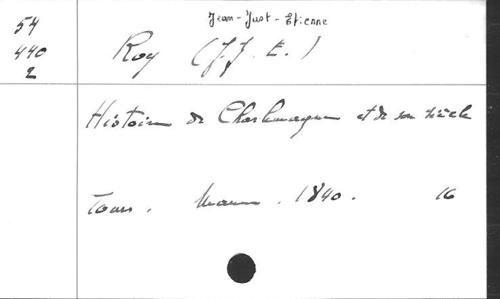 Jean-Just-Etienne
54
440
2
Roy (J. J. E.)
Histoire de Charlemagne et de son siècle
Tours. Mame. 1840. 16